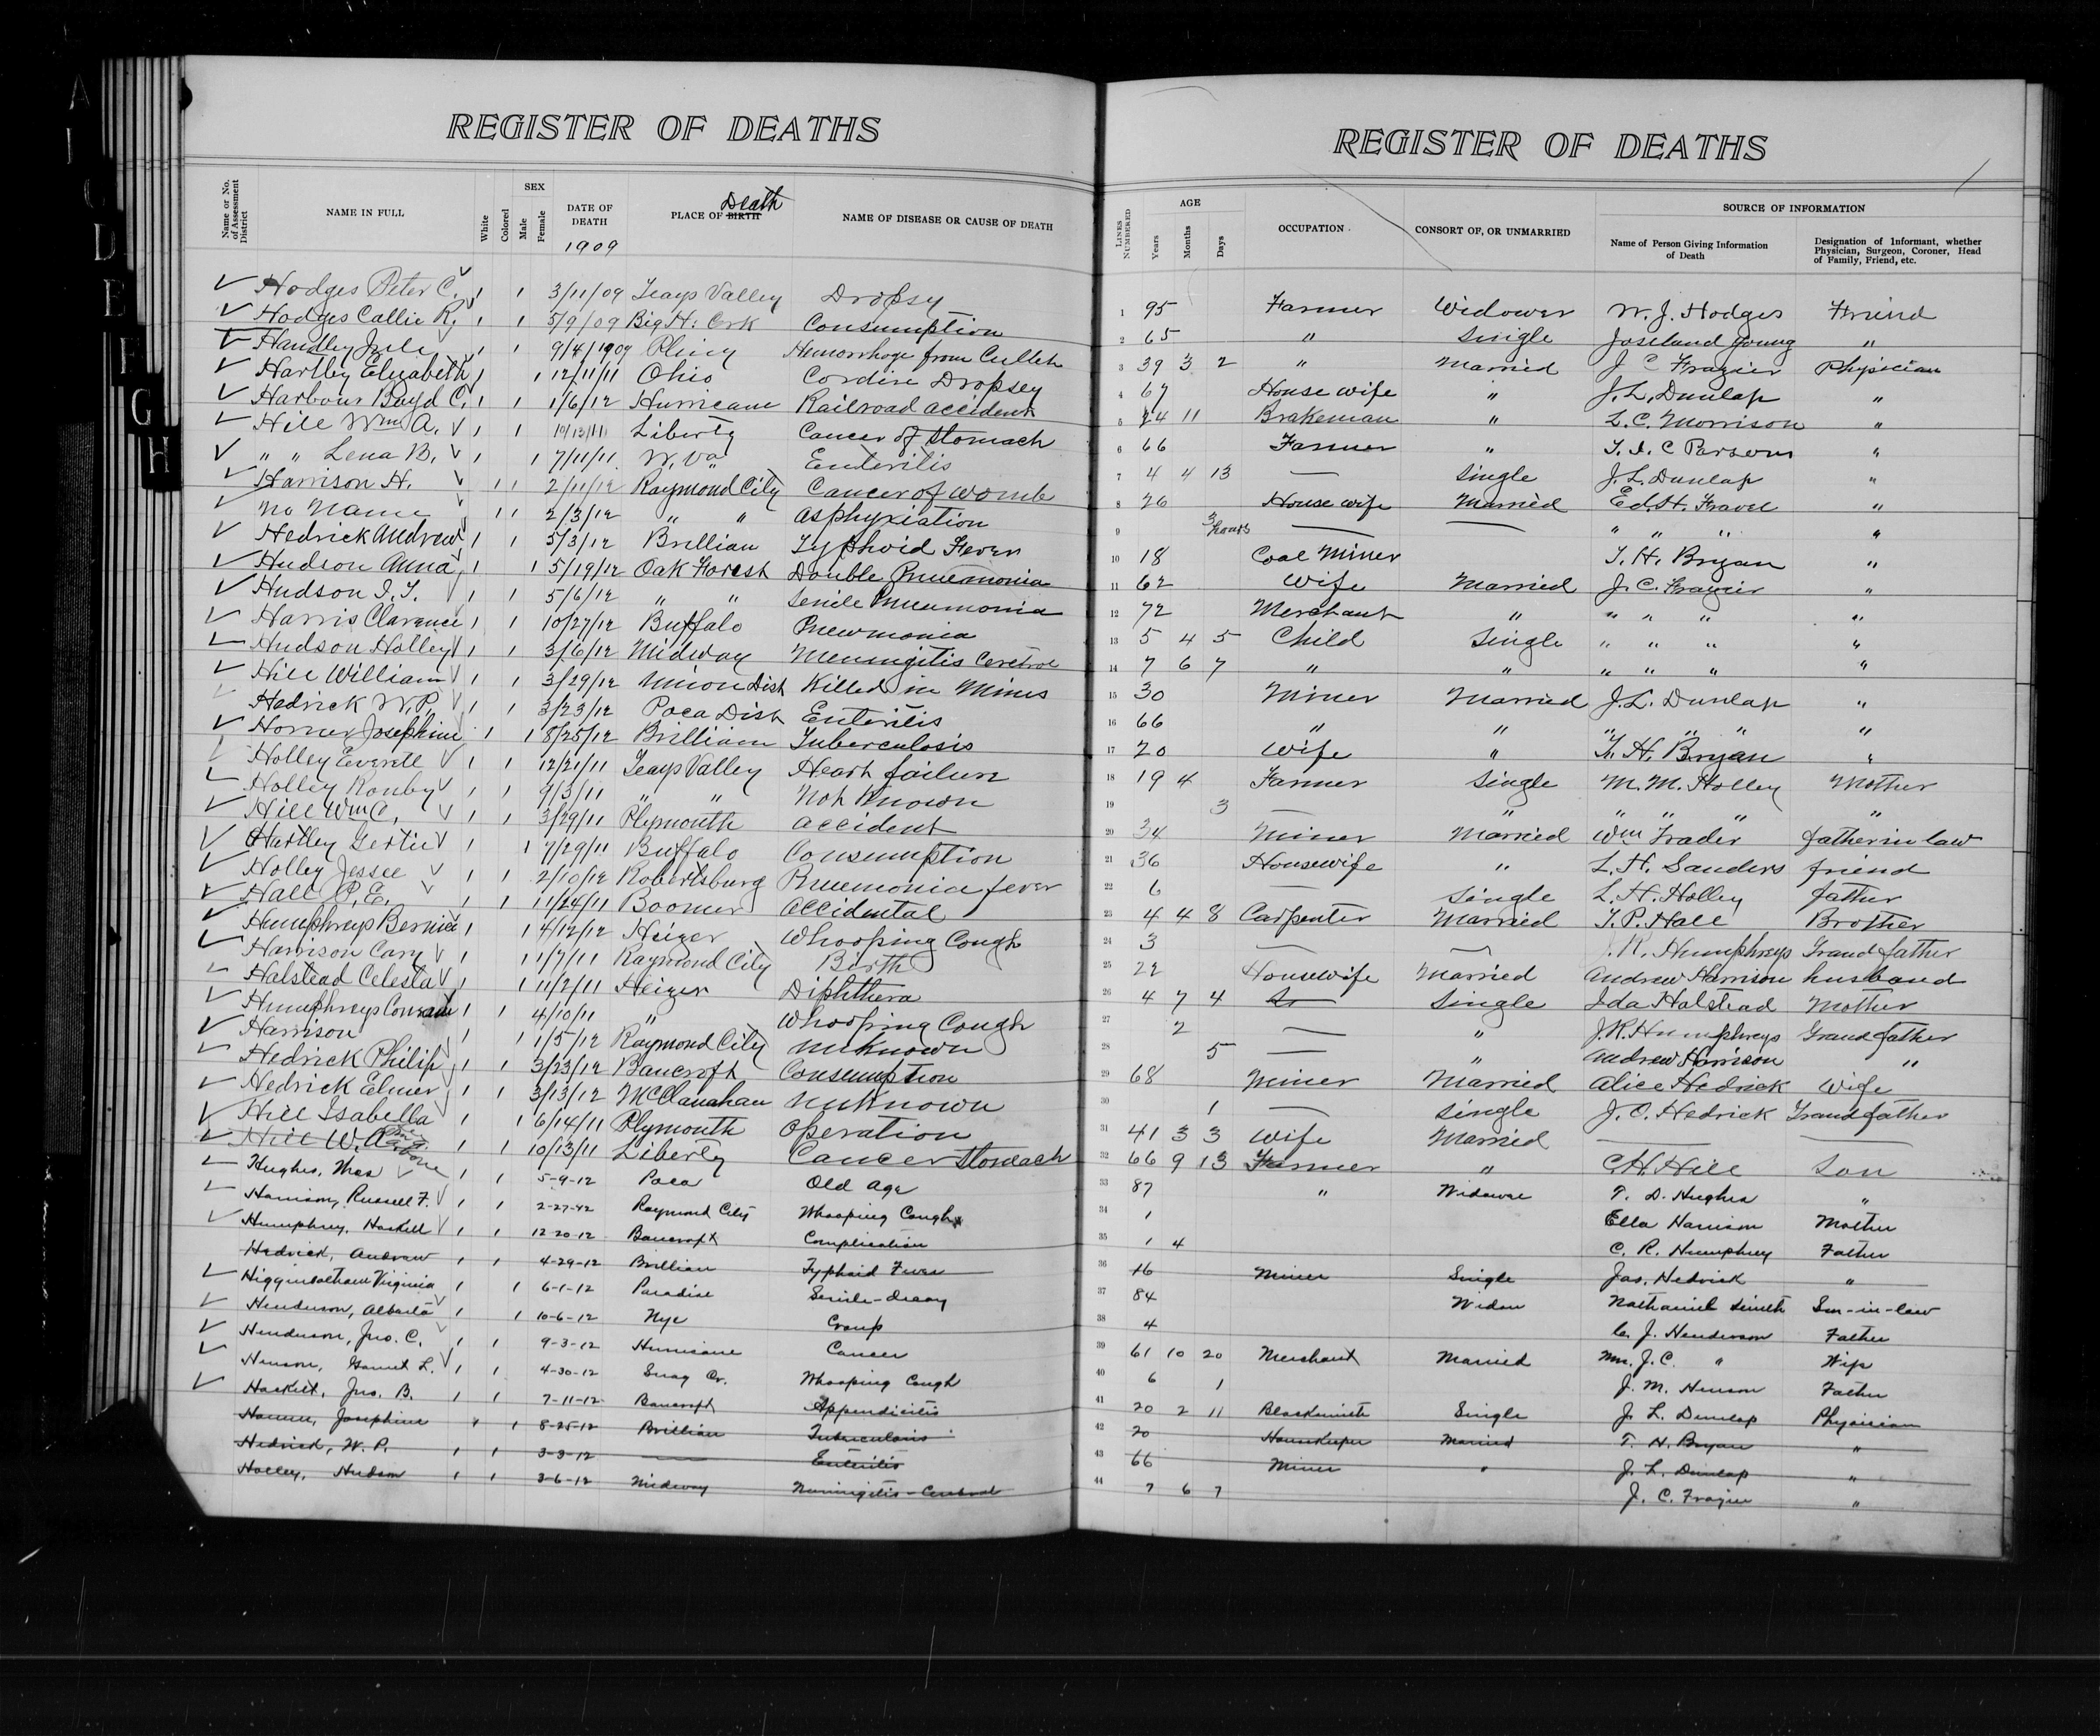 REGISTER OF DEATHS
Name or No. of Assessment District
NAME IN FULL
White
Colored
SEX
Male
Female
DATE OF DEATH
1909
PLACE OF BIRTH Death
NAME OF DISEASE OR CAUSE OF DEATH
Hodges Peter C. 1 1 3/11/09 Teays Valley Dropsy
Hodges Callie R. 1 1 5/9/09 Big H: Consumption
Handley 1 1 9/4/1909 Pliny Hemorrhage from
Hartley Elizabeth 1 1 12/11/11 Ohio Dropsey
Harbour Boyd C. 1 1 1/6/12 Hurricane Railroad accident
Hill Wm A. 1 1 10/13/11 Liberty Cancer of Stomach
" " Lena B. 1 1 7/11/11 W. Va Enteritis
Harrison H. 1 1 2/11/12 Raymond City Cancer of womb
No Name 1 1 2/3/12 " " Asphyxiation
Hedrick Andrew 1 1 5/3/12 Brillian Typhoid Fever
Hudson Anna 1 1 5/19/12 Oak Forest Double Pneumonia
Hudson I.T. 1 1 5/6/12 " " Senile Pneumonia
Harris Clarence 1 1 10/27/12 Buffalo Pneumonia
Hudson Holley 1 1 3/6/12 Midway Meningitis
Hill William 1 1 3/29/12 Union Dist Killed in Mines
Hedrick W.P. 1 1 3/23/12 Poca Dist Enteritis
Horner Josephine 1 1 8/25/12 Brilliam Tuberculosis
Holley Everett 1 1 12/21/11 Teays Valley Heart failure
Holley Ronby 1 1 9/3/11 " " Not Known
Hill Wm C. 1 1 3/29/11 Plymouth accident
Hartley Gertie 1 1 7/29/11 Buffalo Consumption
Holley Jessee 1 1 2/10/12 Robertsburg Pneumonia fever
Hall P.E. 1 1 1/24/11 Boomer accidental
Humphreys Bernice 1 1 4/12/12 Heizer Whooping Cough
Harrison Cary 1 1 1/7/11 Raymond City Birth
Halstead Celesta 1 1 11/2/11 Heizer Diphthera
Humphreys 1 1 4/10/11 " Whooping Cough
Harrison 1 1 1/5/12 Raymond City unknown
Hedrick Philip 1 1 3/23/12 Bancroft Consumption
Hedrick Elmer 1 1 3/13/12 McClanahan unknown
Hill Isabella 1 1 6/14/11 Plymouth operation
Hill W.A. 1 1 10/13/11 Liberty Cancer Stomach
Hughes, Thos 1 1 5-9-12 Poca Old Age
Harrison, Russell F. 1 1 2-27-12 Raymond City Whooping Cough
Humphrey, Haskell 1 1 12-20-12 Bancroft Complication
Hedrick, Andrew 1 1 4-29-12 Brillian Typhoid Fever
Higginbotham Virginia 1 1 6-1-12 Paradise Senile-decay
Henderson, Alberta 1 1 10-6-12 Nye Croup
Henderson, Jno. C. 1 1 9-3-12 Hurricane Cancer
Henson, Garnet L. 1 1 4-30-12 Cr. Whooping Cough
Haskett, Jno. B. 1 1 7-11-12 Bancroft Appendicitis
Josephine " 1 8-25-12 Brillian Tuberculosis
Hedrick, W. P. 1 1 3-3-12 Enteritis
Holley, Hudson 1 1 3-6-12 Midway
REGISTER OF DEATHS
LINES NUMBERED
AGE
Years
Months
Days
OCCUPATION
CONSORT OF, OR UNMARRIED
SOURCE OF INFORMATION
Name of Person Giving Information of Death
Designation of Informant, whether Physician, Surgeon, Coroner, Head of Family, Friend, etc.
1 95 Farmer Widower W. J. Hodges Friend
2 65 " Single Joseland Young "
3 39 3 2 " Married J C Frazier Physician
4 67 House wife " J. L. Dunlap "
5 24 11 Brakeman " L. C. Morrison "
6 66 Farmer " Parsons "
7 4 4 13 — Single J. L. Dunlap "
8 26 House wife Married Ed. H. "
9 3 hours — — " " " "
10 18 Coal Miner T. H. Bryan "
11 62 Wife Married J. C. Frazier "
12 72 Merchant " " " " "
13 5 4 5 Child Single " " " "
14 7 6 7 " " " " " "
15 30 Miner Married J. L. Dunlap "
16 66 " " " " " "
17 20 Wife " T. H. Bryan "
18 19 4 Farmer Single M. M. Holley Mother
19 3 — " " " " "
20 34 Miner Married Wm father in law
21 36 Housewife " L. H. Sanders friend
22 6 — Single L. H. Holley father
23 4 4 8 Carpenter Married T. P. Hall Brother
24 3 — — J. R. Humphreys Grand father
25 22 Housewife Married Andrew Harrison husband
26 4 7 4 Single Ida Halstead Mother
27 2 — " J. R. Humphreys Grand father
28 5 — " Andrew Harrison "
29 68 Miner Married Alice Hedrick Wife
30 1 — Single J. O. Hedrick Grand father
31 41 3 3 Wife Married — —
32 66 9 13 Farmer " C. H. Hill Son
33 87 " T. D. Hughes "
34 1 Ella Harrison Mother
35 1 4 C. R. Humphrey Father
36 16 Miner Single Jas. Hedrick "
37 84 Widow Nathaniel Smith Son-in-law
38 4 C. J. Henderson Father
39 61 10 20 Merchant Married Mrs. J. C. " Wife
40 6 1 J. M. Henson Father
41 20 2 11 Blacksmith Single J. L. Dunlap Physician
42 20 Housekeeper Married T. H. Bryan "
43 66 Miner " J. L. Dunlap "
44 7 6 7 J. C. Frazier "
A
D
E
F
G
H